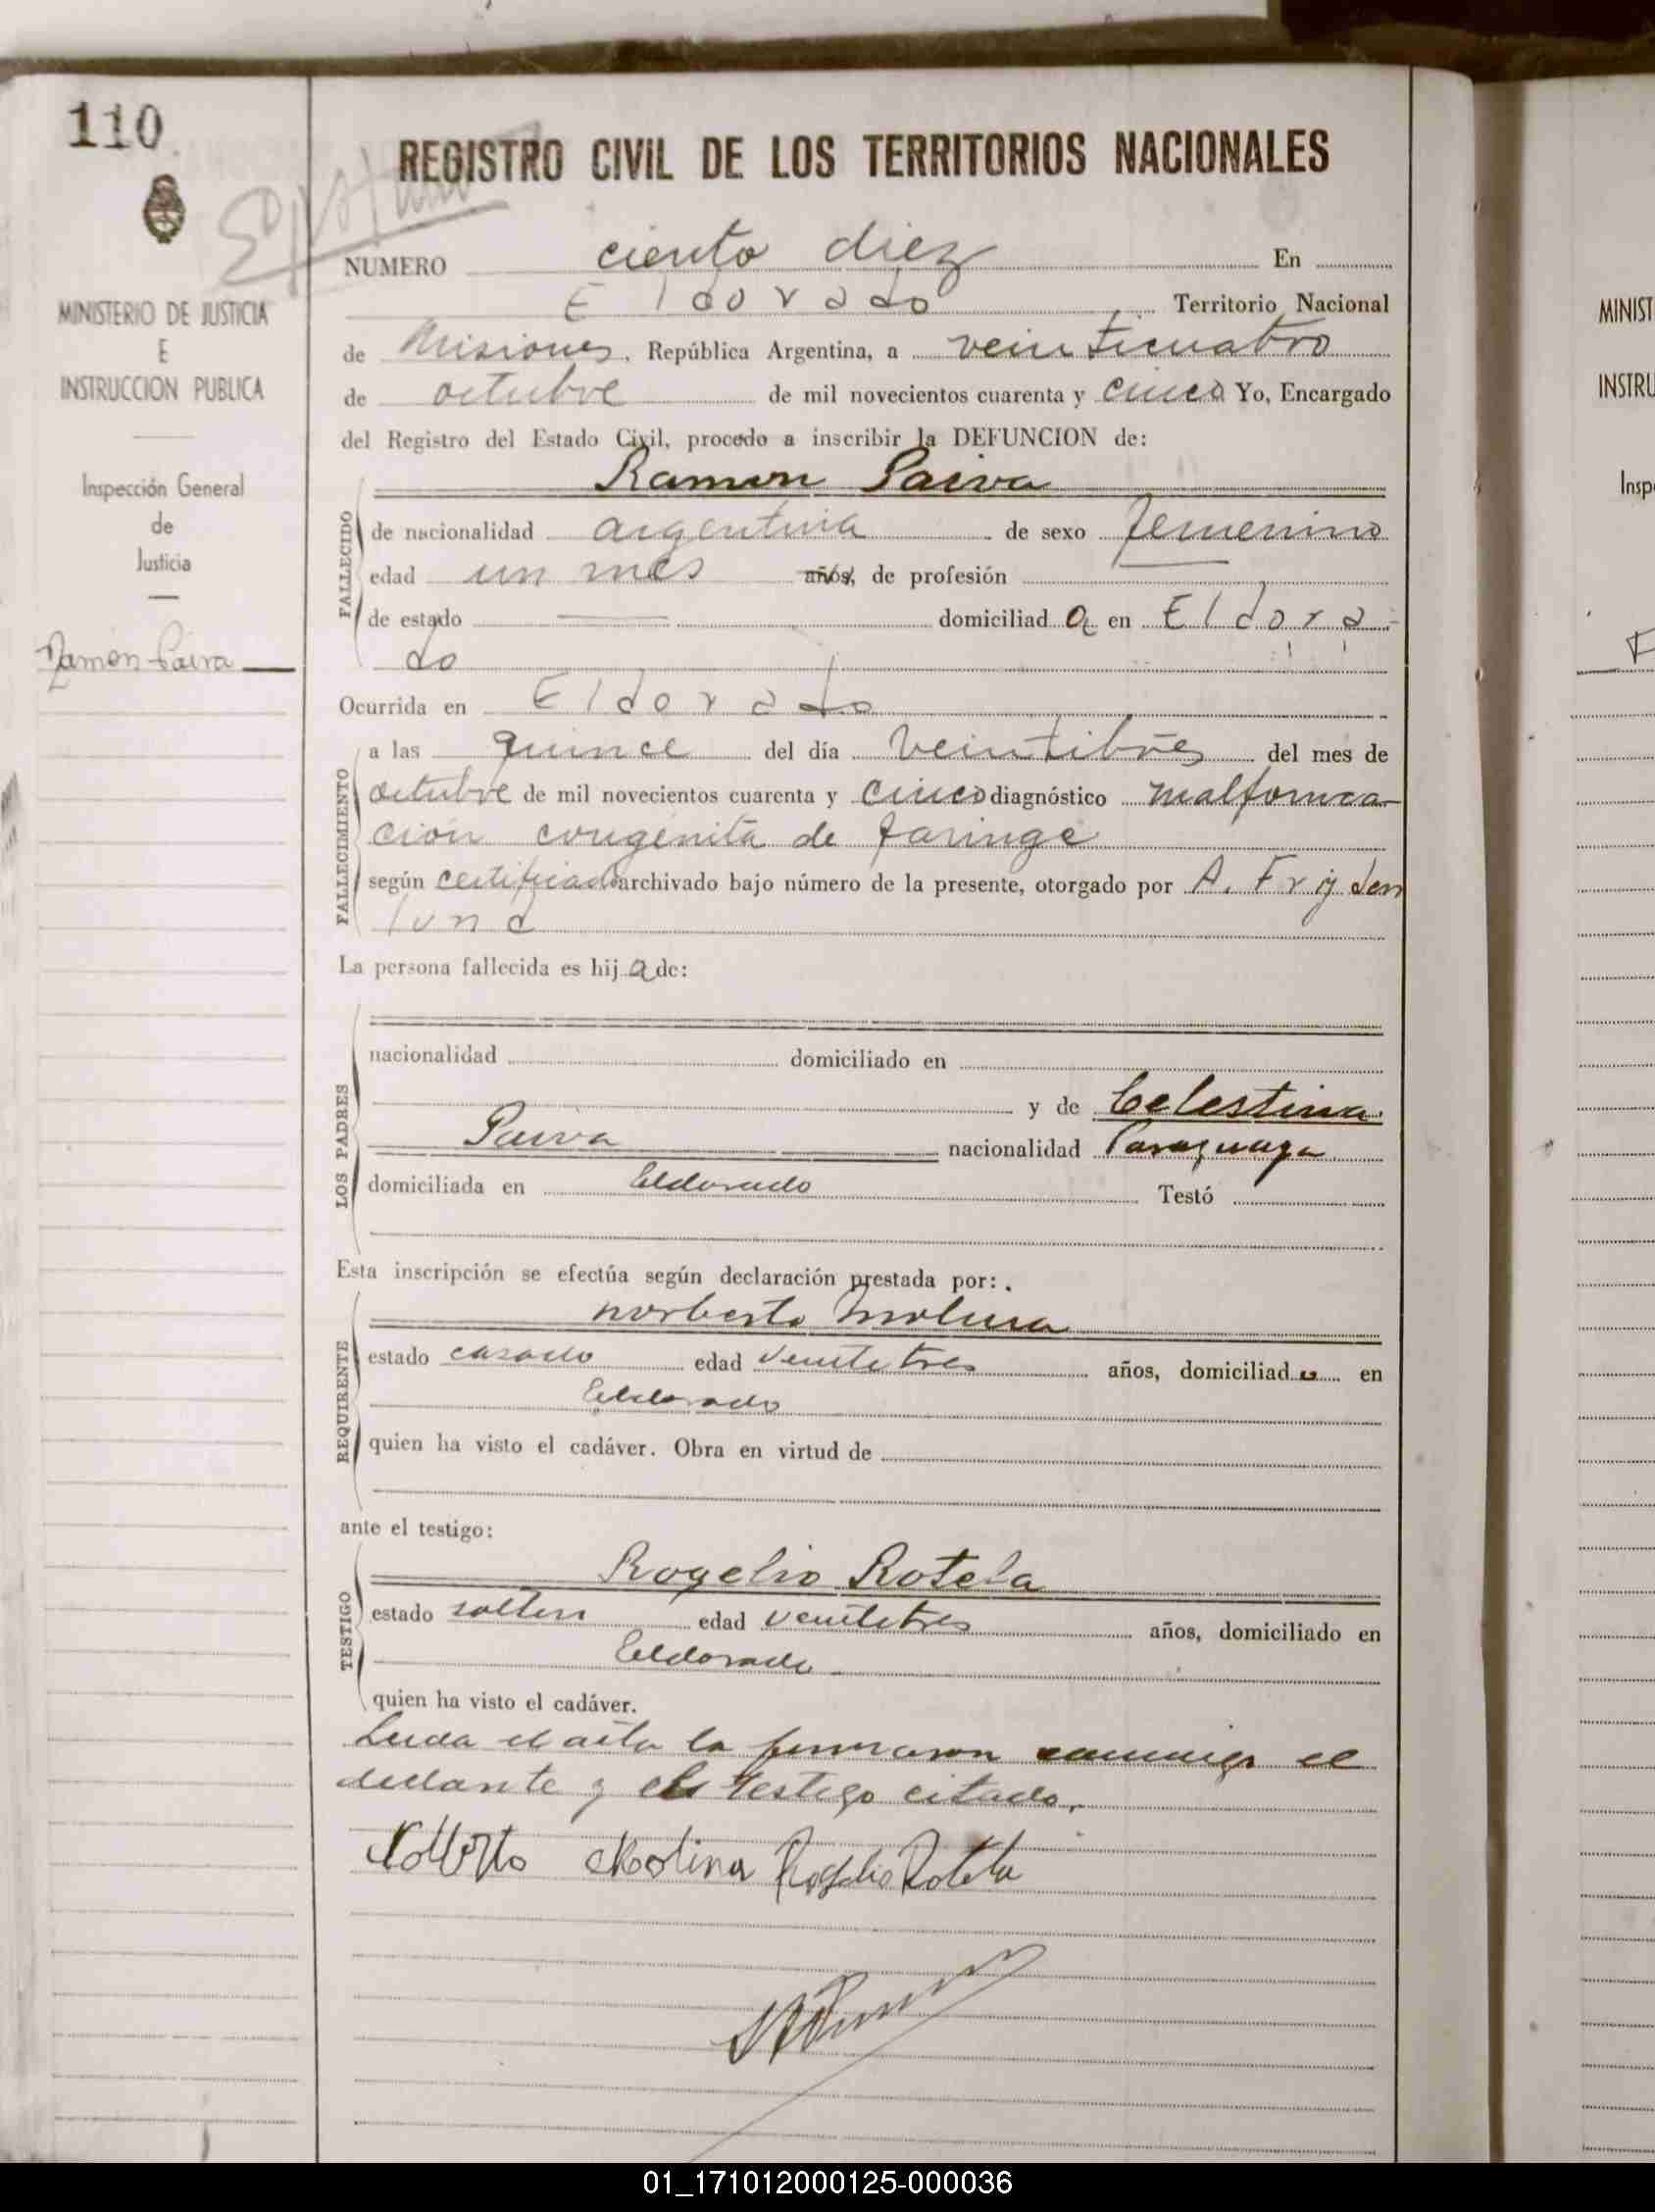 110
REGISTRO CIVIL DE LOS TERRITORIOS NACIONALES
NUMERO ciento diez En
Eldorado Territorio Nacional
de Misiones, República Argentina, a veinticuatro
de octubre de mil novecientos cuarenta y cinco Yo, Encargado
del Registro del Estado Civil, procedo a inscribir la DEFUNCION de:
Ramon Paiva
FALLECIDO
de nacionalidad argentina de sexo femenino
edad un mes años, de profesión
de estado domiciliad a en Eldora-
do
Ocurrida en Eldorado
FALLECIMIENTO
a las quince del día veintitrés del mes de
octubre de mil novecientos cuarenta y cinco diagnóstico malforma-
ción congenita de faringe
según certificado archivado bajo número de la presente, otorgado por A. Frijden
lund
La persona fallecida es hij a de:
LOS PADRES
nacionalidad domiciliado en
y de Celestina
Paiva nacionalidad Paraguaya
domiciliada en Eldorado Testó
Esta inscripción se efectúa según declaración prestada por:
Norberto Molina
REQUIRENTE
estado casado edad veintitres años, domiciliad o en
Eldorado
quien ha visto el cadáver. Obra en virtud de
ante el testigo:
Rogelio Rotela
TESTIGO
estado soltero edad veintitres años, domiciliado en
Eldorado
quien ha visto el cadáver.
Leida el acta la firmaron conmigo el
declarante y el testigo citado.
Norberto Molina Rogelio Rotela
MINISTERIO DE JUSTICIA
E
INSTRUCCION PUBLICA
Inspección General
de
Justicia
Ramon Paiva
MINIST
INSTRU
Insp
01_171012000125-000036